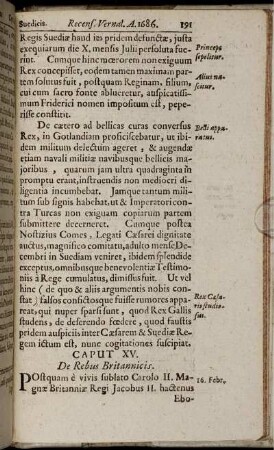 Suedicis. Recens. Vernal. A. 1686. 191
Regis Suediæ haud ita pridem defunctæ, justa
exequiarum die X. mensis Julii persoluta fue-
rint. Cumque hinc mœrorem non exiguum
Rex concepisset, eodem tamen maximam par-
tem solutus fuit, postquam Reginam, filium,
cui cum sacro fonte ablueretur, auspicatissi-
mum Friderici nomen impositum est, pepe-
risse constitit.
Princeps
sepelitur.
Alius na-
scitur.
De cætero ad bellicas curas conversus
Rex, in Gotlandiam proficiscebatur, ut ibi-
dem militum delectum ageret, & augendæ
etiam navali militiæ navibusque bellicis ma-
joribus, quarum jam ultra quadraginta in
promptu erant, instruendis non mediocri di-
ligentia incumbebat. Jamque tantum mili-
tum sub signis habebat, ut & Imperatori con-
tra Turcas non exiguam copiarum partem
submittere decerneret. Cumque postea
Nostizius Comes, Legati Cæsarei dignitate
auctus, magnifico comitatu, adulto mense De-
cembri in Suediam veniret, ibidem splendide
exceptus, omnibusque benevolentiæ Testimo-
niis à Rege cumulatus, dimissus fuit. Ut vel
hinc (de quo & aliis argumentis nobis con-
stat) falsos confictosque fuisse rumores appa-
reat, qui nuper sparsi sunt, quod Rex Gallis
studens, de deserendo fœdere, quod faustis
pridem auspiciis inter Cæsarem & Suediæ Re-
gem ictum est, nunc cogitationes suscipiat.
Belli appa-
ratus.
Rex Cæsa-
ris studio-
sus.
CAPUT XV.
De Rebus Britannicis.
POstquam è vivis sublato Carolo II. Ma-
gnæ Britanniæ Regi Jacobus II. hactenus
16. Febr.
Ebo-